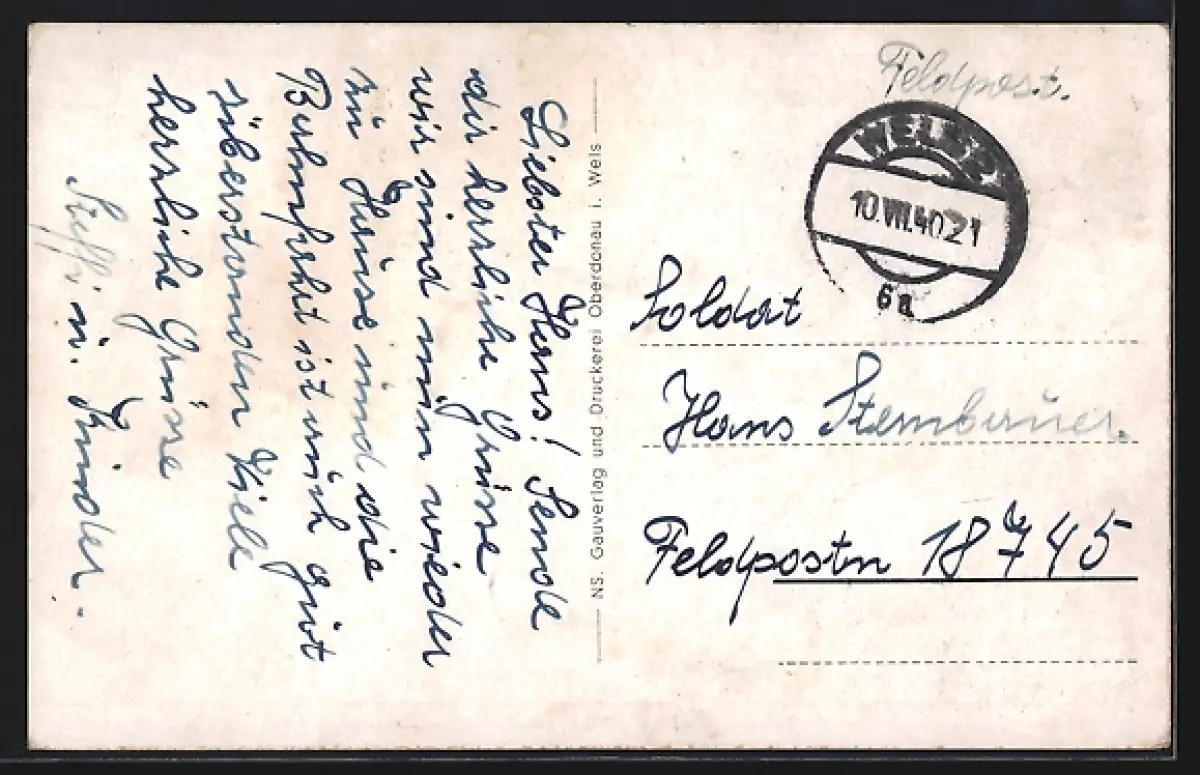 Liebster Hans! Sende
dir herzliche Grüsse
wir sind nun wieder
zu Hause und die
Bahnfahrt ist auch gut
überstanden Viele
herzliche Grüsse
Steffi u. Kinder.-
NS. Gauverlag und Druckerei Oberdonau i. Wels
Feldpost.
WELS
10.VIII.40 21
6a
Soldat
Hans Sternbauer.
Feldpostn 18745